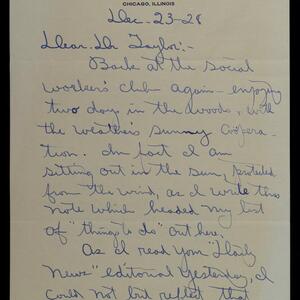 CHICAGO, ILLINOIS
Dec-23-28
Dear Dr Taylor:-
Back at the social
worker's club again - enjoying
two days in the woods, with
the weather's sunny coopera-
tion. In fact I am
sitting out in the sun, protected
from the wind, as I write this
note which headed my list
of "things to do" out here.
As I read your "Daily
News" editorial yesterday, I
could not but reflect that